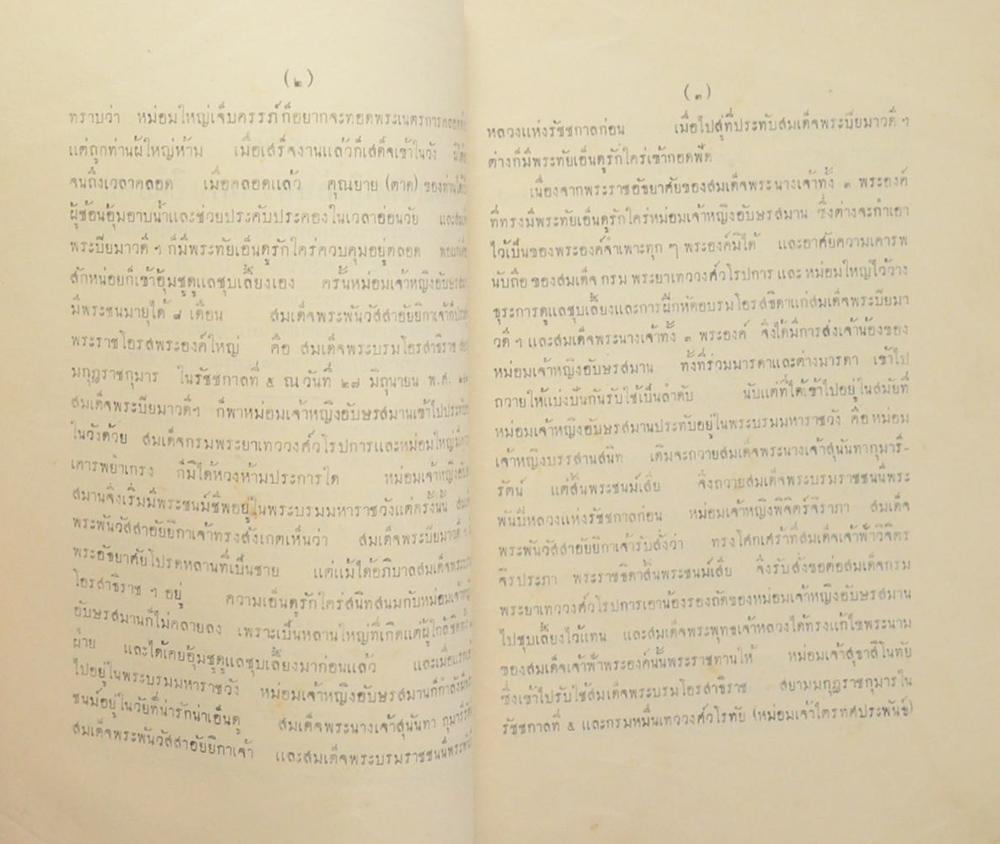 (๒)
ทราบว่า หม่อมใหญ่เจ็บครรภ์ก็อยากจะทอดพระเนตรการคลอด
แต่ถูกท่านผู้ใหญ่ห้าม เมื่อเสร็จงานแล้วก็เสด็จเข้าในวัง
จนถึงเวลาคลอด เมื่อคลอดแล้ว คุณยาย (ตาด) ของท่านได้
ผู้ช้อนอุ้มอาบน้ำและช่วยประคับประคองในเวลาอ่อนวัย และ
พระปิยมาวดีฯ ก็มีพระทัยเอ็นดูรักใคร่ควบคุมอยู่ตลอด
สักหน่อยก็เข้าอุ้มชูดูแลชุบเลี้ยงเอง ครั้นหม่อมเจ้าหญิงอัปษรสมาน
มีพระชนมายุได้ ๘ เดือน สมเด็จพระพันวัสสาอัยยิกาเจ้า
พระราชโอรสพระองค์ใหญ่ คือ สมเด็จพระบรมโอรสาธิราช
มกุฎราชกุมาร ในรัชชกาลที่ ๕ ณ วันที่ ๒๗ มิถุนายน พ.ศ.
สมเด็จพระปิยมาวดีฯ ก็พาหม่อมเจ้าหญิงอัปษรสมานเข้าไป
ในวังด้วย สมเด็จกรมพระยาเทววงศ์วโรปการและหม่อมใหญ่
เคารพยำเกรง ก็มิได้หวงห้ามประการใด หม่อมเจ้าหญิง
สมานจึงเริ่มมีพระชนม์ชีพอยู่ในพระบรมมหาราชวังแต่ครั้งนั้น
พระพันวัสสาอัยยิกาเจ้าทรงสังเกตเห็นว่า สมเด็จพระปิยมาวดีฯ
พระอัธยาศัยโปรดหลานที่เป็นชาย แต่แม้ได้อภิบาลสมเด็จ
โอรสาธิราช ฯ อยู่ ความเอ็นดูรักใคร่สนิทสนมกับหม่อมเจ้าหญิง
อัปษรสมานก็ไม่คลายลง เพราะเป็นหลานใหญ่ที่เกิดแต่ผู้ใกล้ชิด
ฝ่าย และได้เคยอุ้มชูดูแลชุบเลี้ยงมาก่อนแล้ว และเมื่อ
ไปอยู่ในพระบรมมหาราชวัง หม่อมเจ้าหญิงอัปษรสมานก็กำลัง
ชนม์อยู่ในวัยที่น่ารักน่าเอ็นดู สมเด็จพระนางเจ้าสุนันทา กุมารีรัตน์
สมเด็จพระพันวัสสาอัยยิกาเจ้า และสมเด็จพระบรมราชชนนี
(๓)
หลวงแห่งรัชชกาลก่อน เมื่อไปสู่ที่ประทับสมเด็จพระปิยมาวดีฯ
ต่างก็มีพระทัยเอ็นดูรักใคร่เข้ากอดฟัด
เนื่องจากพระราชอัธยาศัยของสมเด็จพระนางเจ้าทั้ง ๓ พระองค์
ที่ทรงมีพระทัยเอ็นดูรักใคร่หม่อมเจ้าหญิงอัปษรสมาน ซึ่งต่างจะกำเอา
ไว้เป็นของพระองค์จำเพาะทุก ๆ พระองค์มิได้ และอาศัยความเคารพ
นับถือของสมเด็จ กรม พระยาเทววงศ์วโรปการ และ หม่อมใหญ่ไว้วาง
ธุระการดูแลชุบเลี้ยงและการฝึกหัดอบรมโอรสธิดาแก่สมเด็จพระปิยมา
วดี ฯ และสมเด็จพระนางเจ้าทั้ง ๓ พระองค์ จึงได้มีการส่งเจ้าน้องของ
หม่อมเจ้าหญิงอัปษรสมาน ทั้งที่ร่วมมารดาและต่างมารดา เข้าไป
ถวายให้แบ่งปันกันรับใช้เป็นลำดับ นับแต่ที่ได้เข้าไปอยู่ในสมัยที่
หม่อมเจ้าหญิงอัปษรสมานประทับอยู่ในพระบรมมหาราชวัง คือ หม่อม
เจ้าหญิงบรรสานสนิท เดิมจะถวายสมเด็จพระนางเจ้าสุนันทากุมารี-
รัตน์ แต่สิ้นพระชนม์เสีย จึงถวายสมเด็จพระบรมราชชนนีพระ
พันปีหลวงแห่งรัชชกาลก่อน หม่อมเจ้าหญิงพิจิตร์จิราภา สมเด็จ
พระพันวัสสาอัยยิกาเจ้ารับสั่งว่า ทรงโศกเศร้าที่สมเด็จเจ้าฟ้าวิจิตร
จิรประภา พระราชธิดาสิ้นพระชนม์เสีย จึงรับสั่งขอต่อสมเด็จกรม
พระยาเทววงศ์วโรปการเอาน้องรองถัดของหม่อมเจ้าหญิงอัปษรสมาน
ไปชุบเลี้ยงไว้แทน และสมเด็จพระพุทธเจ้าหลวงได้ทรงแก้ไขพระนาม
ของสมเด็จเจ้าฟ้าพระองค์นั้นพระราชทานให้ หม่อมเจ้าสุธาสิโนทัย
ซึ่งเข้าไปรับใช้สมเด็จพระบรมโอรสาธิราช สยามมกุฎราชกุมารใน
รัชชกาลที่ ๕ และกรมหมื่นเทววงศ์วโรทัย (หม่อมเจ้าไตรทศประพันธ์)